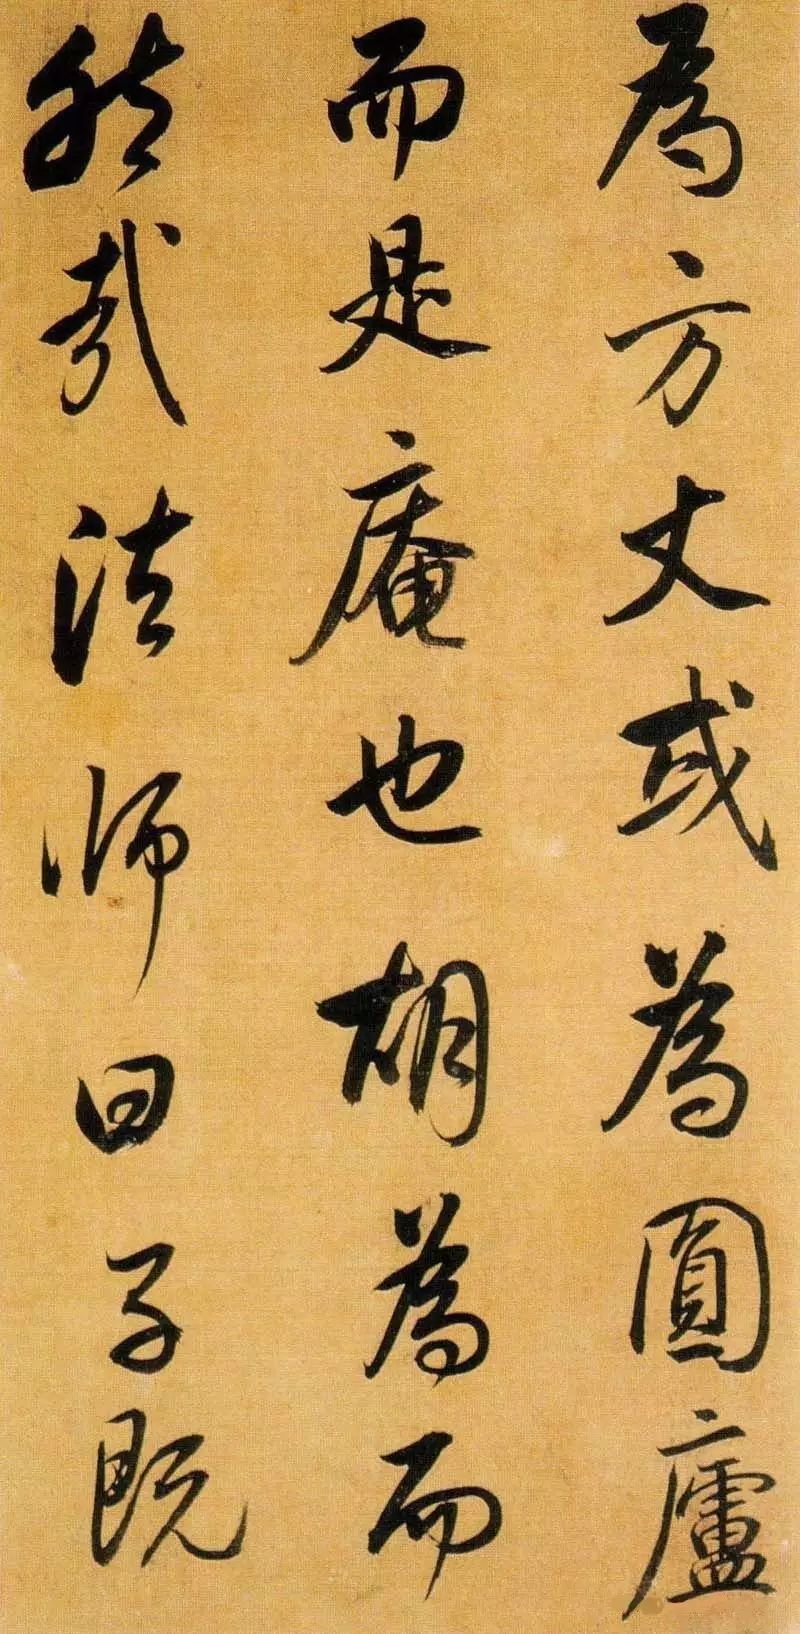 為方丈或為圓廬
而是庵也胡為而
然哉法師曰子既